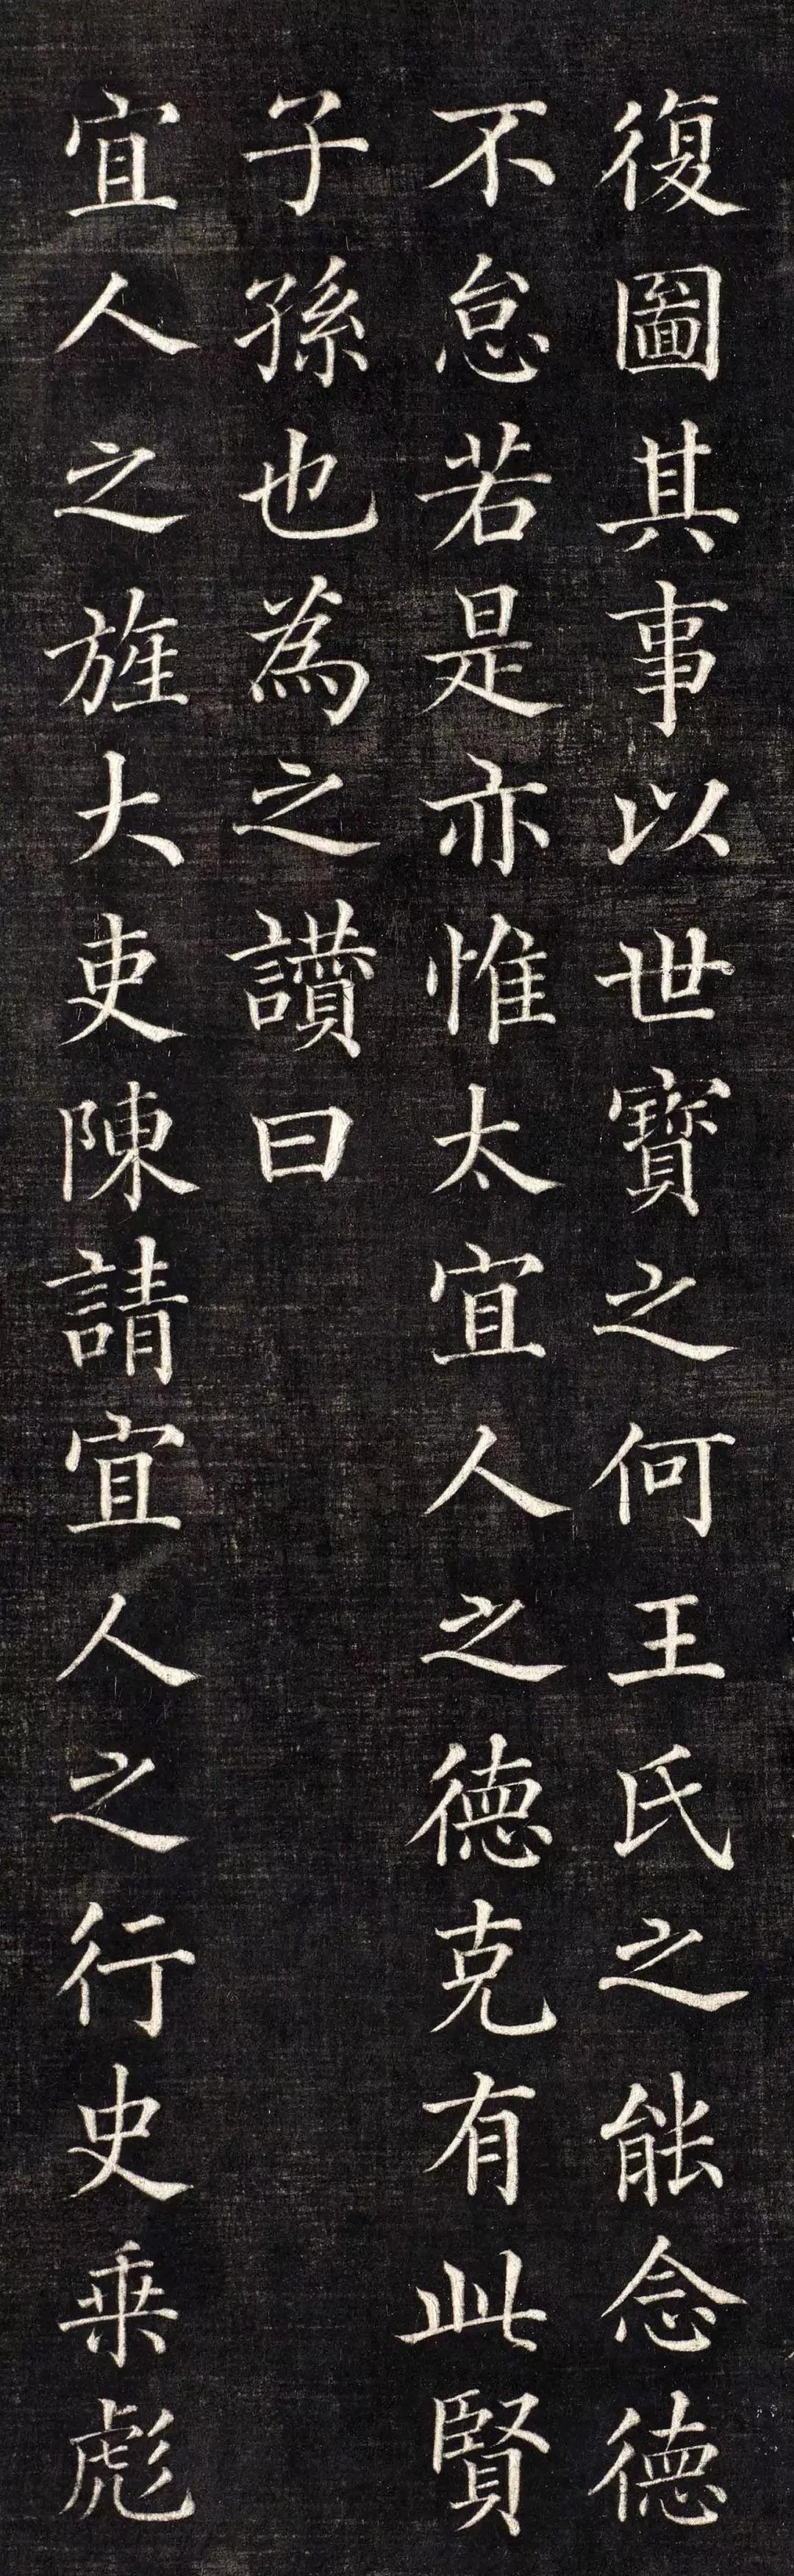 復圖其事以世寶之何王氏之能念德
不怠若是亦惟太宜人之德克有此賢
子孫也為之讚曰
宜人之旌大吏陳請宜人之行史乗彪